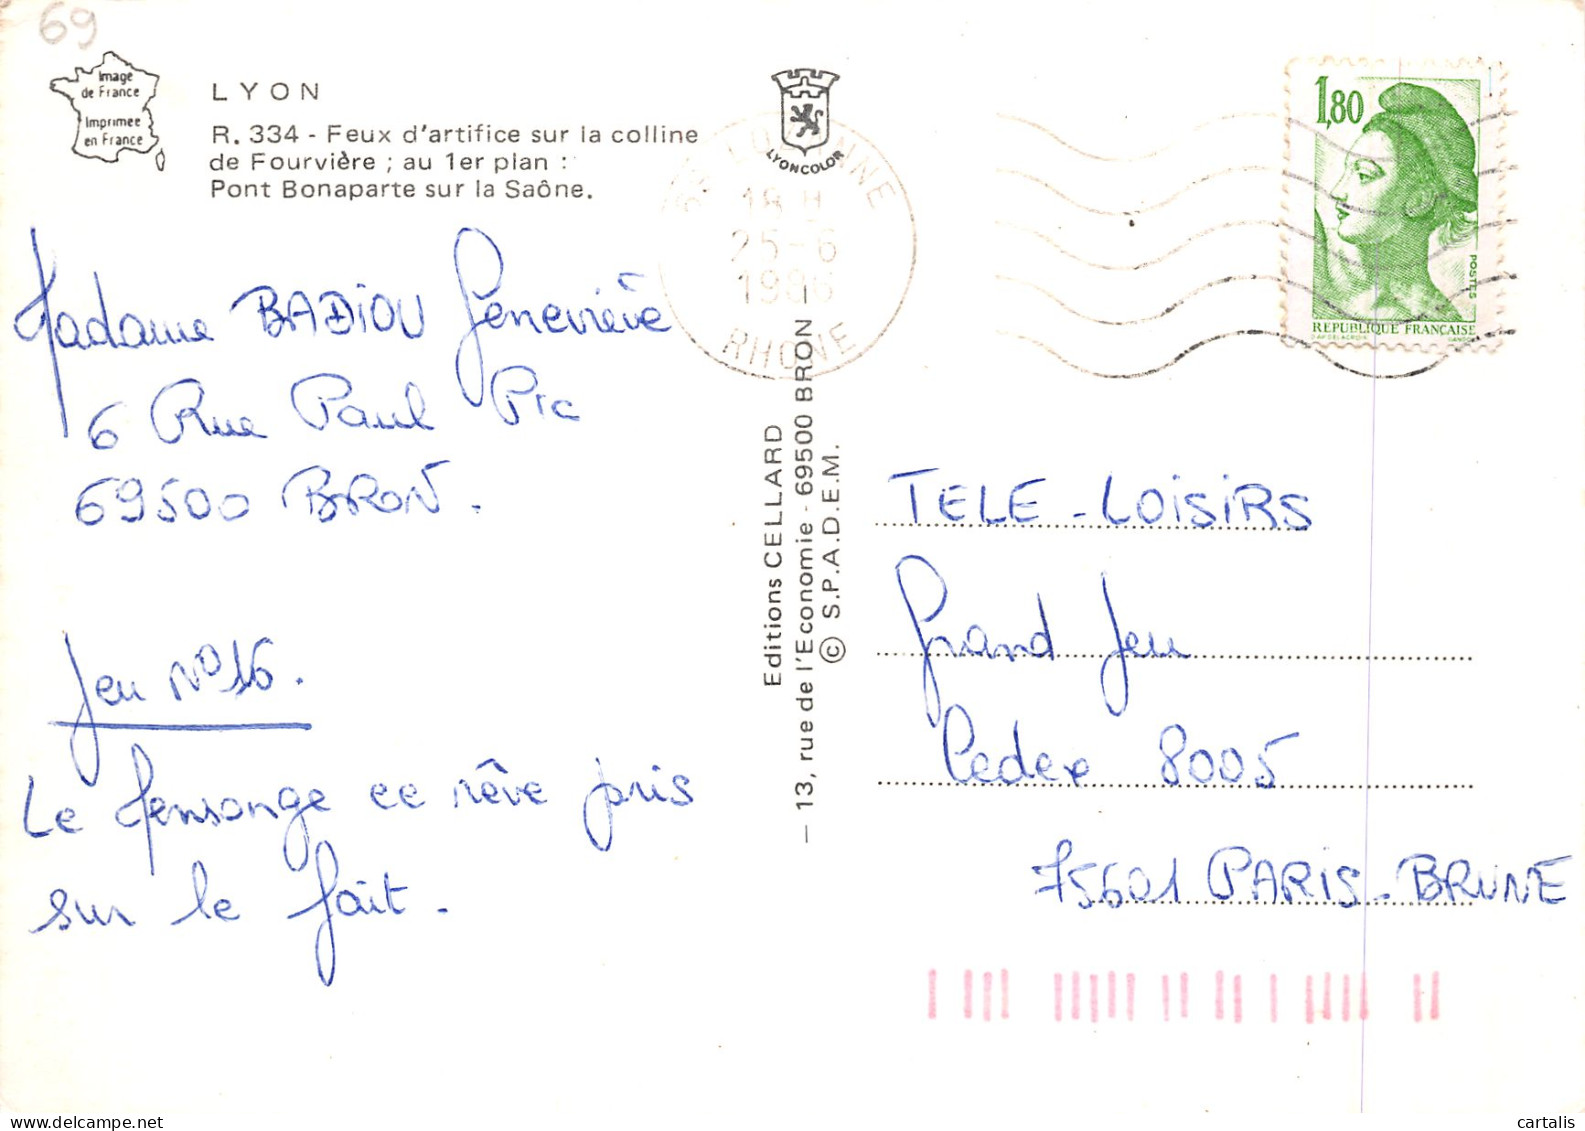 69
Image
de France
Imprimée
en France
LYON
R. 334 - Feux d'artifice sur la colline
de Fourvière ; au 1er plan :
Pont Bonaparte sur la Saône.
LYONCOLOR
18 H
25-6
1986
RHONE
1,80
POSTES
REPUBLIQUE FRANÇAISE
Madame BADIOU Geneviève
6 Rue Paul Pic
69500 BRON.
Jeu N°16.
Le Mensonge ce rêve pris
sur le fait.
Editions CELLARD
— 13, rue de l'Economie - 69500 BRON —
© S.P.A.D.E.M.
TELE - LOISIRS
Grand Jeu
Cedex 8005
75601 PARIS - BRUNE
cartalis